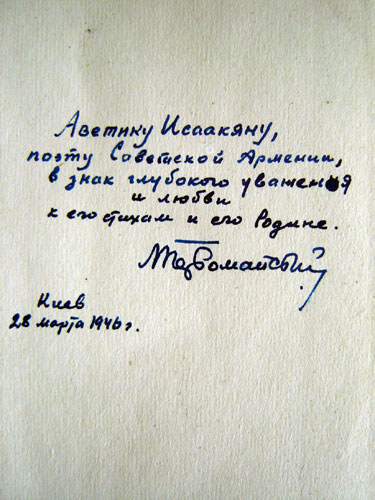 Аветику Исаакяну,
поэту Советской Армении,
в знак глубокого уважения
и любви
к его стихам и его Родине.
Первомайский
Киев
28 марта 1946 г.